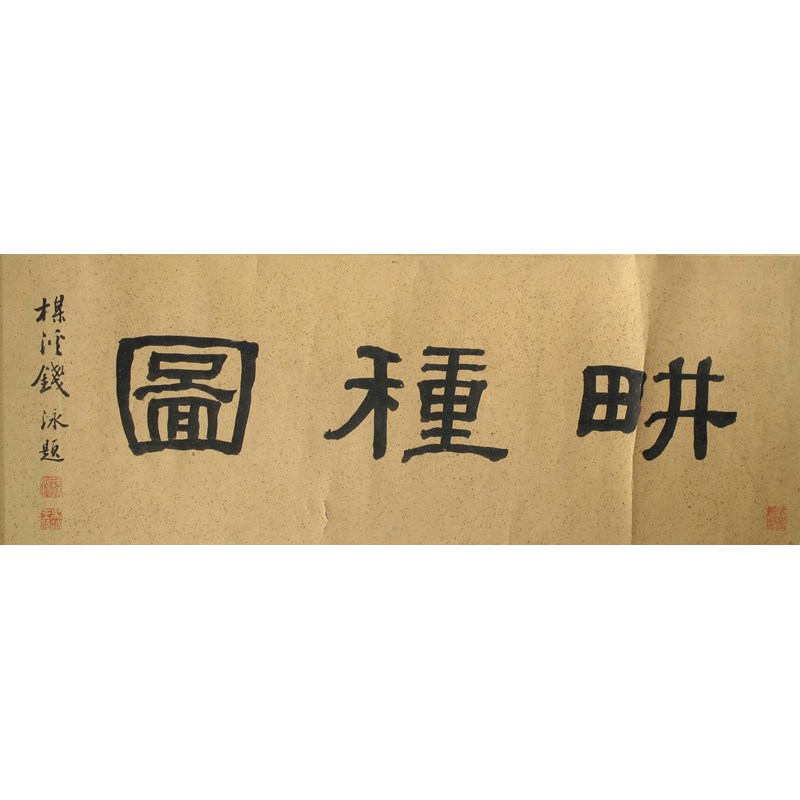 畊種圖
楳溪錢泳題